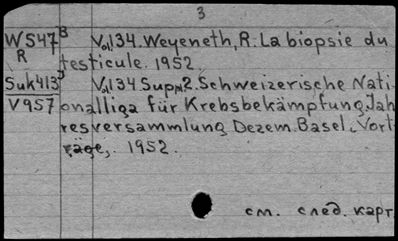 3
W547 B Vol134. Weyeneth, R. La biopsie du
R testicule. 1952.
Suk413 B Vol134 Supp2. Schweizerische Nati-
V957 onalliga für Krebsbekämpfung. Jah
resversammlung Dezem. Basel. Vort
räge, 1952.
см. след. карт